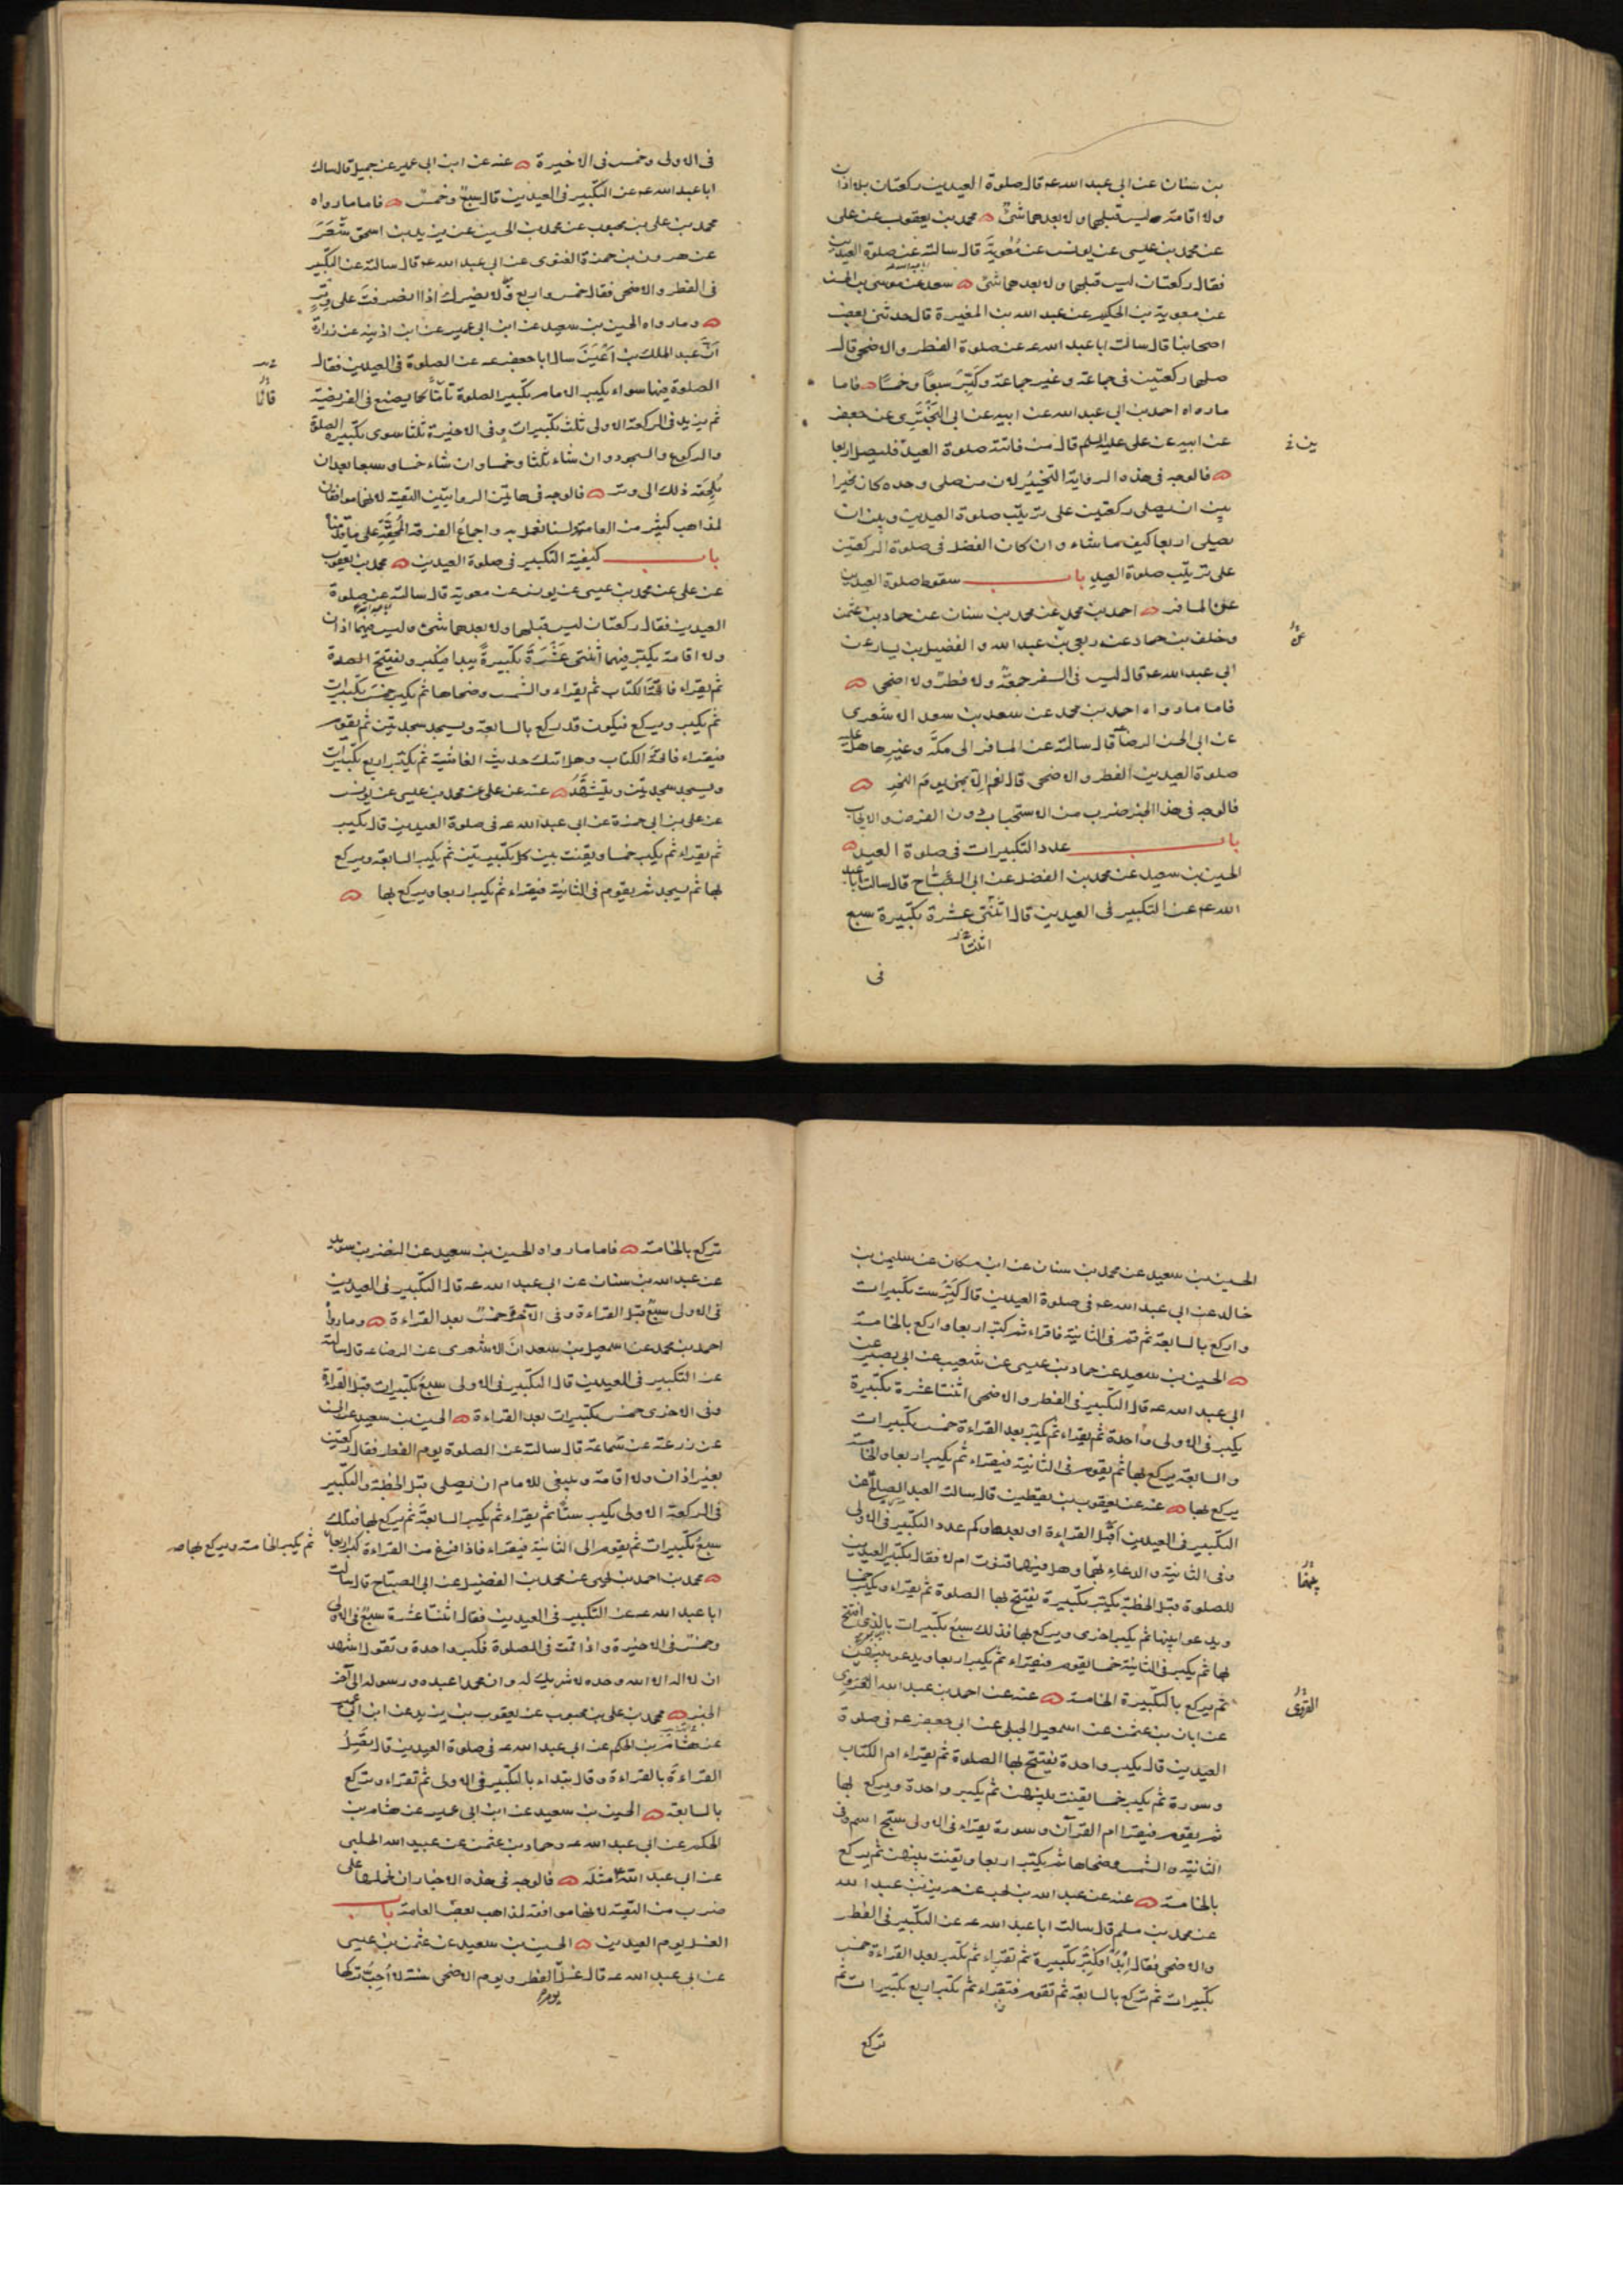 بن سنان عن ابي عبد الله عه قال صلوة العيدين ركعتان بلا اذان
ولا اقامة ليس قبلهما ولا بعدهما شئ محمد بن يعقوب عن على
عن محمد بن عيسى عن يونس عن معوية قال سالته عن صلوة العيدين
فقال ركعتان ليس قبلهما ولا بعدهما شئ سعد عن موسى بن الحسن
عن معوية بن الحكيم عن عبد الله بن المغيرة قال حدثنى بعض
اصحابنا قال سالت ابا عبد الله عه عن صلوة الفطر والاضحى قال
صلهما ركعتين فى جماعة وغير جماعة وكَبِّر سبعًا وخمسًا فاما
ما رواه احمد بن ابي عبد الله عن ابيه عن ابى البَخْتَرى عن جعفر
عن ابيه عن على عليه السلم قال من فاتته صلوة العيد فليصل اربعا
فالوجه فى هذه الرواية التخييُر لان من صلى وحده كان مخيرا
بين ان يصلى ركعتين على ترتيب صلوة العيدين وبين ان
يصلى اربعا كيف ما شاء وان كان الفضل فى صلوة الركعتين
على ترتيب صلوة العيد باب سقوط صلوة العيدين
عن المسافر احمد بن محمد عن محمد بن سنان عن حماد بن عثمن
وخلف بن حماد عن ربعى بن عبد الله والفضيل بن يسار عن
ابى عبد الله عه قال ليس فى السفر جمعة ولا فطر ولا اضحى
فاما ما رواه احمد بن محمد عن سعد بن سعد الاشعرى
عن ابى الحسن الرضا قال سالته عن المسافر الى مكّة وغيرها هل عليه
صلوة العيدين الفطر والاضحى قال نعم الا بمنى يوم النحر
فالوجه فى هذا الخبر ضرب من الاستحباب دون الفرض والايجاب
باب عدد التكبيرات فى صلوة العيد
الحسين بن سعيد عن محمد بن الفضل عن ابى الصباح قال سالت ابا عبد
الله عه عن التكبير فى العيدين قال اثنتى عشرة تكبيرة سبع
اثنتا
فى
فى الاولى وخمس فى الاخيرة عنه عن ابن ابى عمير عن جميل قال سالت
ابا عبد الله عه عن التكبير فى العيدين قال سبعٌ وخمسٌ فاما ما رواه
محمد بن على بن محبوب عن محمد بن الحسين عن يزيد بن اسحق شَعَرَ
عن هرون بن حمزة الغنوى عن ابى عبد الله عه قال سالته عن التكبير
فى الفطر والاضحى فقال خمس واربع ولا يضرك اذا انصرفتَ على وِترٍ
وما رواه الحسين بن سعيد عن ابن ابى عمير عن ابن اذينه عن زرارة
اَنَّ عبد الملك بن اَعْيَنَ سال ابا جعفر عه عن الصلوة فى العيدين فقال
الصلوة فيهما سواء يكبر الامام تكبير الصلوة تامًّا كما يصنع فى الفريضة
ثم يزيد فى الركعة الاولى ثلث تكبيرات وفى الاخيرة ثلثا سوى تكبيرة الصلوة
والركوع والسجود وان شاء ثلثا وخمسا وان شاء خمسا وسبعا بعد ان
يُلحِقَه ذلك الى وتر فالوجه فى هاتين الروايتين التقية لانهما موافقان
لمذاهب كثير من العامة ولسنا نعمل به واجماع الفرقة المُحِقَّةِ على ما قدمناه
باب كيفية التكبير فى صلوة العيدين محمد بن يعقوب
عن على عن محمد بن عيسى عن يونس عن معوية قال سالته عن صلوة
العيدين فقال ركعتان ليس قبلهما ولا بعدهما شئ وليس فيهما اذان
ولا اقامة يكبر فيهما اثنتى عَشْرَةَ تكبيرةً يبدا فيكبر ويفتتح الصلوة
ثم يقراء فاتحة الكتاب ثم يقراء والشمس وضحاها ثم يكبر خمسَ تكبيرات
ثم يكبر ويركع فيكون قد ركع بالسابعة ويسجد سجدتين ثم يقوم
فيقراء فاتحةَ الكتاب وهل اتيك حديث الغاشية ثم يكبر اربع تكبيرات
ويسجد سجدتين ويتشهَّدُ عنه عن على عن محمد بن عيسى عن يونس
عن على بن ابى حمزة عن ابى عبد الله عه فى صلوة العيدين قال يكبر
ثم يقراء ثم يكبر خمسا ويقنت بين كل تكبيرتين ثم يكبر السابعة ويركع
لها ثم يسجد ثم يقوم فى الثانية فيقراء ثم يكبر اربعا ويركع لها
الحسين بن سعيد عن محمد بن سنان عن ابن مسكان عن سليمن بن
خالد عن ابى عبد الله عه فى صلوة العيدين قال كَبِّر ست تكبيرات
واركع بالسابعة ثم قم فى الثانية فاقراء ثم كبّر اربعا واركع بالخامسة
الحسين بن سعيد عن حماد بن عيسى عن شعيب عن ابى بصير عن
ابى عبد الله عه قال التكبير فى الفطر والاضحى اثنتا عشرة تكبيرة
يكبر فى الاولى واحدة ثم يقراء ثم يكبر بعد القراءة خمس تكبيرات
والسابعة يركع بها ثم يقوم فى الثانية فيقراء ثم يكبر اربعا والخامسة
يركع بها عنه عن يعقوب بن يقطين قال سالت العبد الصالح عن
التكبير فى العيدين اقبل القراءة او بعدها وكم عدد التكبير فى الاولى
وفى الثانية والدعاء بينهما وهل فيهما قنوت ام لا فقال تكبير العيدين
للصلوة قبل الخطبة يكبر تكبيرة يفتتح بها الصلوة ثم يقراء ويكبر خمسا
ويدعو بينهما ثم يكبر اخرى ويركع بها فذلك سبعُ تكبيرات بالذى افتتح
بها ثم يكبر فى الثانية خمسا يقوم فيقراء ثم يكبر اربعا ويدعو بينهن
ثم يركع بالتكبيرة الخامسة عنه عن احمد بن عبد الله القروى
عن ابان بن عثمن عن اسمعيل الجبلى عن ابى جعفر عه فى صلوة
العيدين قال يكبر واحدة يفتتح بها الصلوة ثم يقراء ام الكتاب
وسورة ثم يكبر خمسا يقنت بينهن ثم يكبر واحدة ويركع بها
ثم يقوم فيقرا ام القرآن وسورة يقراء فى الاولى سبّح اسم وفى
الثانية والشمس وضحاها ثم يكبّر اربعا ويقنت بينهن ثم يركع
بالخامسة عنه عن عبد الله بن بحر عن حريز بن عبد الله
عن محمد بن مسلم قال سالت ابا عبد الله عه عن التكبير فى الفطر
والاضحى فقال اِبْدَأ فكَبِّر تكبيرة ثم تقراء ثم تكبر بعد القراءة خمس
تكبيرات ثم تركع بالسابعة ثم تقوم فتقراء ثم تكبر اربع تكبيرات ثم
القروى
تركع
تركع بالخامسة فاما ما رواه الحسين بن سعيد عن النضر بن سويد
عن عبد الله بن سنان عن ابى عبد الله عه قال التكبير فى العيدين
فى الاولى سبعٌ قبل القراءة وفى الآخرة خمسٌ بعد القراءة وما رواه
احمد بن محمد عن اسمعيل بن سعد ان الاشعرى عن الرضا عه قال سالته
عن التكبير فى العيدين قال التكبير فى الاولى سبعُ تكبيرات قبل القراءة
وفى الاخرى خمس تكبيرات بعد القراءة الحسين بن سعيد عن الحسن
عن زرعة عن سَماعة قال سالته عن الصلوة يوم الفطر فقال ركعتين
بغير اذان ولا اقامة وينبغى للامام ان يصلى قبل الخطبة والتكبير
فى الركعة الاولى يكبر ستًّا ثم يقراء ثم يكبر السابعة ثم يركع بها فتلك
سبعُ تكبيرات ثم يقوم الى الثانية فيقراء فاذا فرغ من القراءة كبر اربعا
ثم يكبر الخامسة ويركع بها صه
محمد بن احمد بن يحيى عن محمد بن الفضيل عن ابى الصباح قال سالت
ابا عبد الله عه عن التكبير فى العيدين فقال اثنتا عشرة سبعٌ فى الاولى
وخمسٌ فى الاخيرة واذا قمت فى الصلوة فكبر واحدة وتقول اشهد
ان لا اله الا الله وحده لا شريك له وان محمدا عبده ورسوله الى آخر
الخبر محمد بن على بن محبوب عن يعقوب بن يزيد عن ابن ابى عمير
عن هشام بن الحكم عن ابى عبد الله عه فى صلوة العيدين قال يَصِلُ
القراءةَ بالقراءة وقال تبداء بالتكبير فى الاولى ثم تقراء وتركع
بالسابعة الحسين بن سعيد عن ابن ابى عمير عن هشام بن
الحكم عن ابى عبد الله عه وحماد بن عثمن عن عبيد الله الحلبى
عن ابى عبد الله عه مثلَه فالوجه فى هذه الاخبار ان نحملها على
ضرب من التقية لانها موافقة لمذاهب بعض العامة باب
الغسل يوم العيدين الحسين بن سعيد عن عثمن بن عيسى
عن ابى عبد الله عه قال غسل الفطر ويوم الاضحى سنة لا اُحِبُّ تركها
يوم